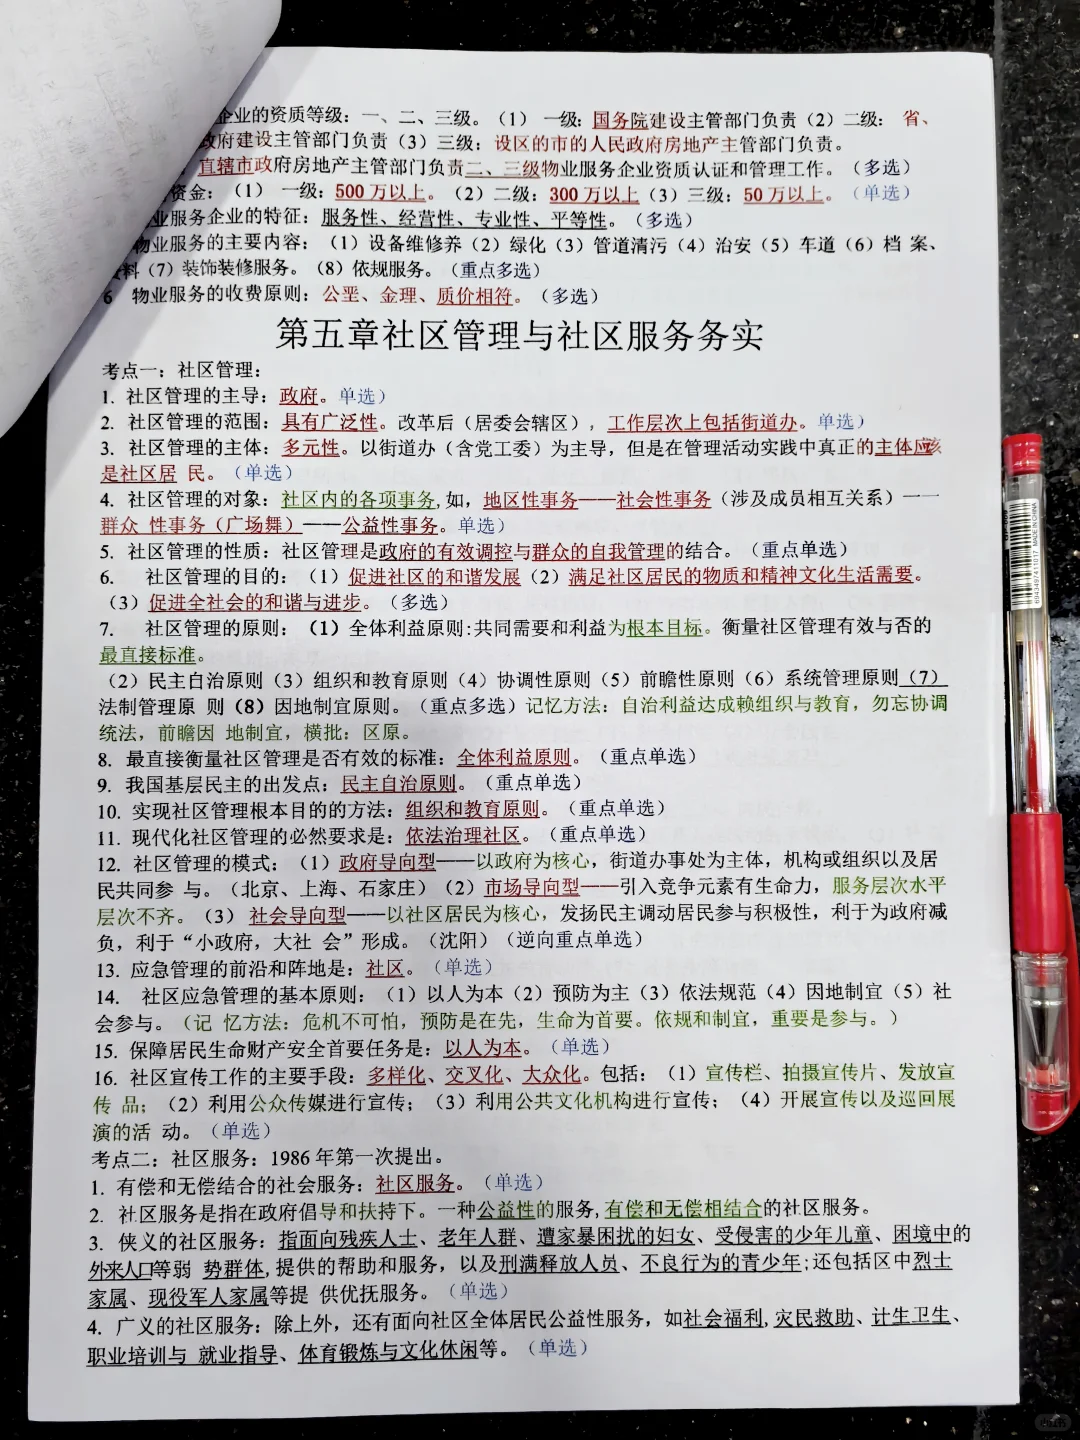 企业的资质等级：一、二、三级。（1） 一级：国务院建设主管部门负责（2）二级： 省、
政府建设主管部门负责（3）三级：设区的市的人民政府房地产主管部门负责。
直辖市政府房地产主管部门负责二、三级物业服务企业资质认证和管理工作。（多选）
资金：（1） 一级：500 万以上。（2）二级：300 万以上（3）三级：50 万以上。（单选）
业服务企业的特征：服务性、经营性、专业性、平等性。（多选）
物业服务的主要内容：（1）设备维修养（2）绿化（3）管道清污（4）治安（5）车道（6）档 案、
资料（7）装饰装修服务。（8）依规服务。（重点多选）
6 物业服务的收费原则：公垩、金理、质价相符。（多选）
第五章社区管理与社区服务务实
考点一：社区管理：
1. 社区管理的主导：政府。单选）
2. 社区管理的范围：具有广泛性。改革后（居委会辖区），工作层次上包括街道办。单选）
3. 社区管理的主体：多元性。以街道办（含党工委）为主导，但是在管理活动实践中真正的主体应该
是社区居 民。（单选）
4. 社区管理的对象：社区内的各项事务,如，地区性事务——社会性事务（涉及成员相互关系）——
群众 性事务（广场舞）——公益性事务。单选）
5. 社区管理的性质：社区管理是政府的有效调控与群众的自我管理的结合。（重点单选）
6. 社区管理的目的：（1）促进社区的和谐发展（2）满足社区居民的物质和精神文化生活需要。
（3）促进全社会的和谐与进步。（多选）
7. 社区管理的原则：（1）全体利益原则:共同需要和利益为根本目标。衡量社区管理有效与否的
最直接标准。
（2）民主自治原则（3）组织和教育原则（4）协调性原则（5）前瞻性原则（6）系统管理原则（7）
法制管理原 则（8）因地制宜原则。（重点多选）记忆方法：自治利益达成赖组织与教育，勿忘协调
统法，前瞻因 地制宜，横批：区原。
8. 最直接衡量社区管理是否有效的标准：全体利益原则。（重点单选）
9. 我国基层民主的出发点：民主自治原则。（重点单选）
10. 实现社区管理根本目的的方法：组织和教育原则。（重点单选）
11. 现代化社区管理的必然要求是：依法治理社区。（重点单选）
12. 社区管理的模式：（1）政府导向型——以政府为核心，街道办事处为主体，机构或组织以及居
民共同参 与。（北京、上海、石家庄）（2）市场导向型——引入竞争元素有生命力，服务层次水平
层次不齐。（3） 社会导向型——以社区居民为核心，发扬民主调动居民参与积极性，利于为政府减
负，利于“小政府，大社 会”形成。（沈阳）（逆向重点单选）
13. 应急管理的前沿和阵地是：社区。（单选）
14. 社区应急管理的基本原则：（1）以人为本（2）预防为主（3）依法规范（4）因地制宜（5）社
会参与。（记 忆方法：危机不可怕，预防是在先，生命为首要。依规和制宜，重要是参与。）
15. 保障居民生命财产安全首要任务是：以人为本。（单选）
16. 社区宣传工作的主要手段：多样化、交叉化、大众化。包括：（1）宣传栏、拍摄宣传片、发放宣
传 品；（2）利用公众传媒进行宣传；（3）利用公共文化机构进行宣传；（4）开展宣传以及巡回展
演的活 动。（单选）
考点二：社区服务：1986 年第一次提出。
1. 有偿和无偿结合的社会服务：社区服务。（单选）
2. 社区服务是指在政府倡导和扶持下。一种公益性的服务,有偿和无偿相结合的社区服务。
3. 侠义的社区服务：指面向残疾人士、老年人群、遭家暴困扰的妇女、受侵害的少年儿童、困境中的
外来人口等弱 势群体,提供的帮助和服务，以及刑满释放人员、不良行为的青少年;还包括区中烈士
家属、现役军人家属等提 供优抚服务。（单选）
4. 广义的社区服务：除上外，还有面向社区全体居民公益性服务，如社会福利,灾民救助、计生卫生、
职业培训与 就业指导、体育锻炼与文化休闲等。（单选）